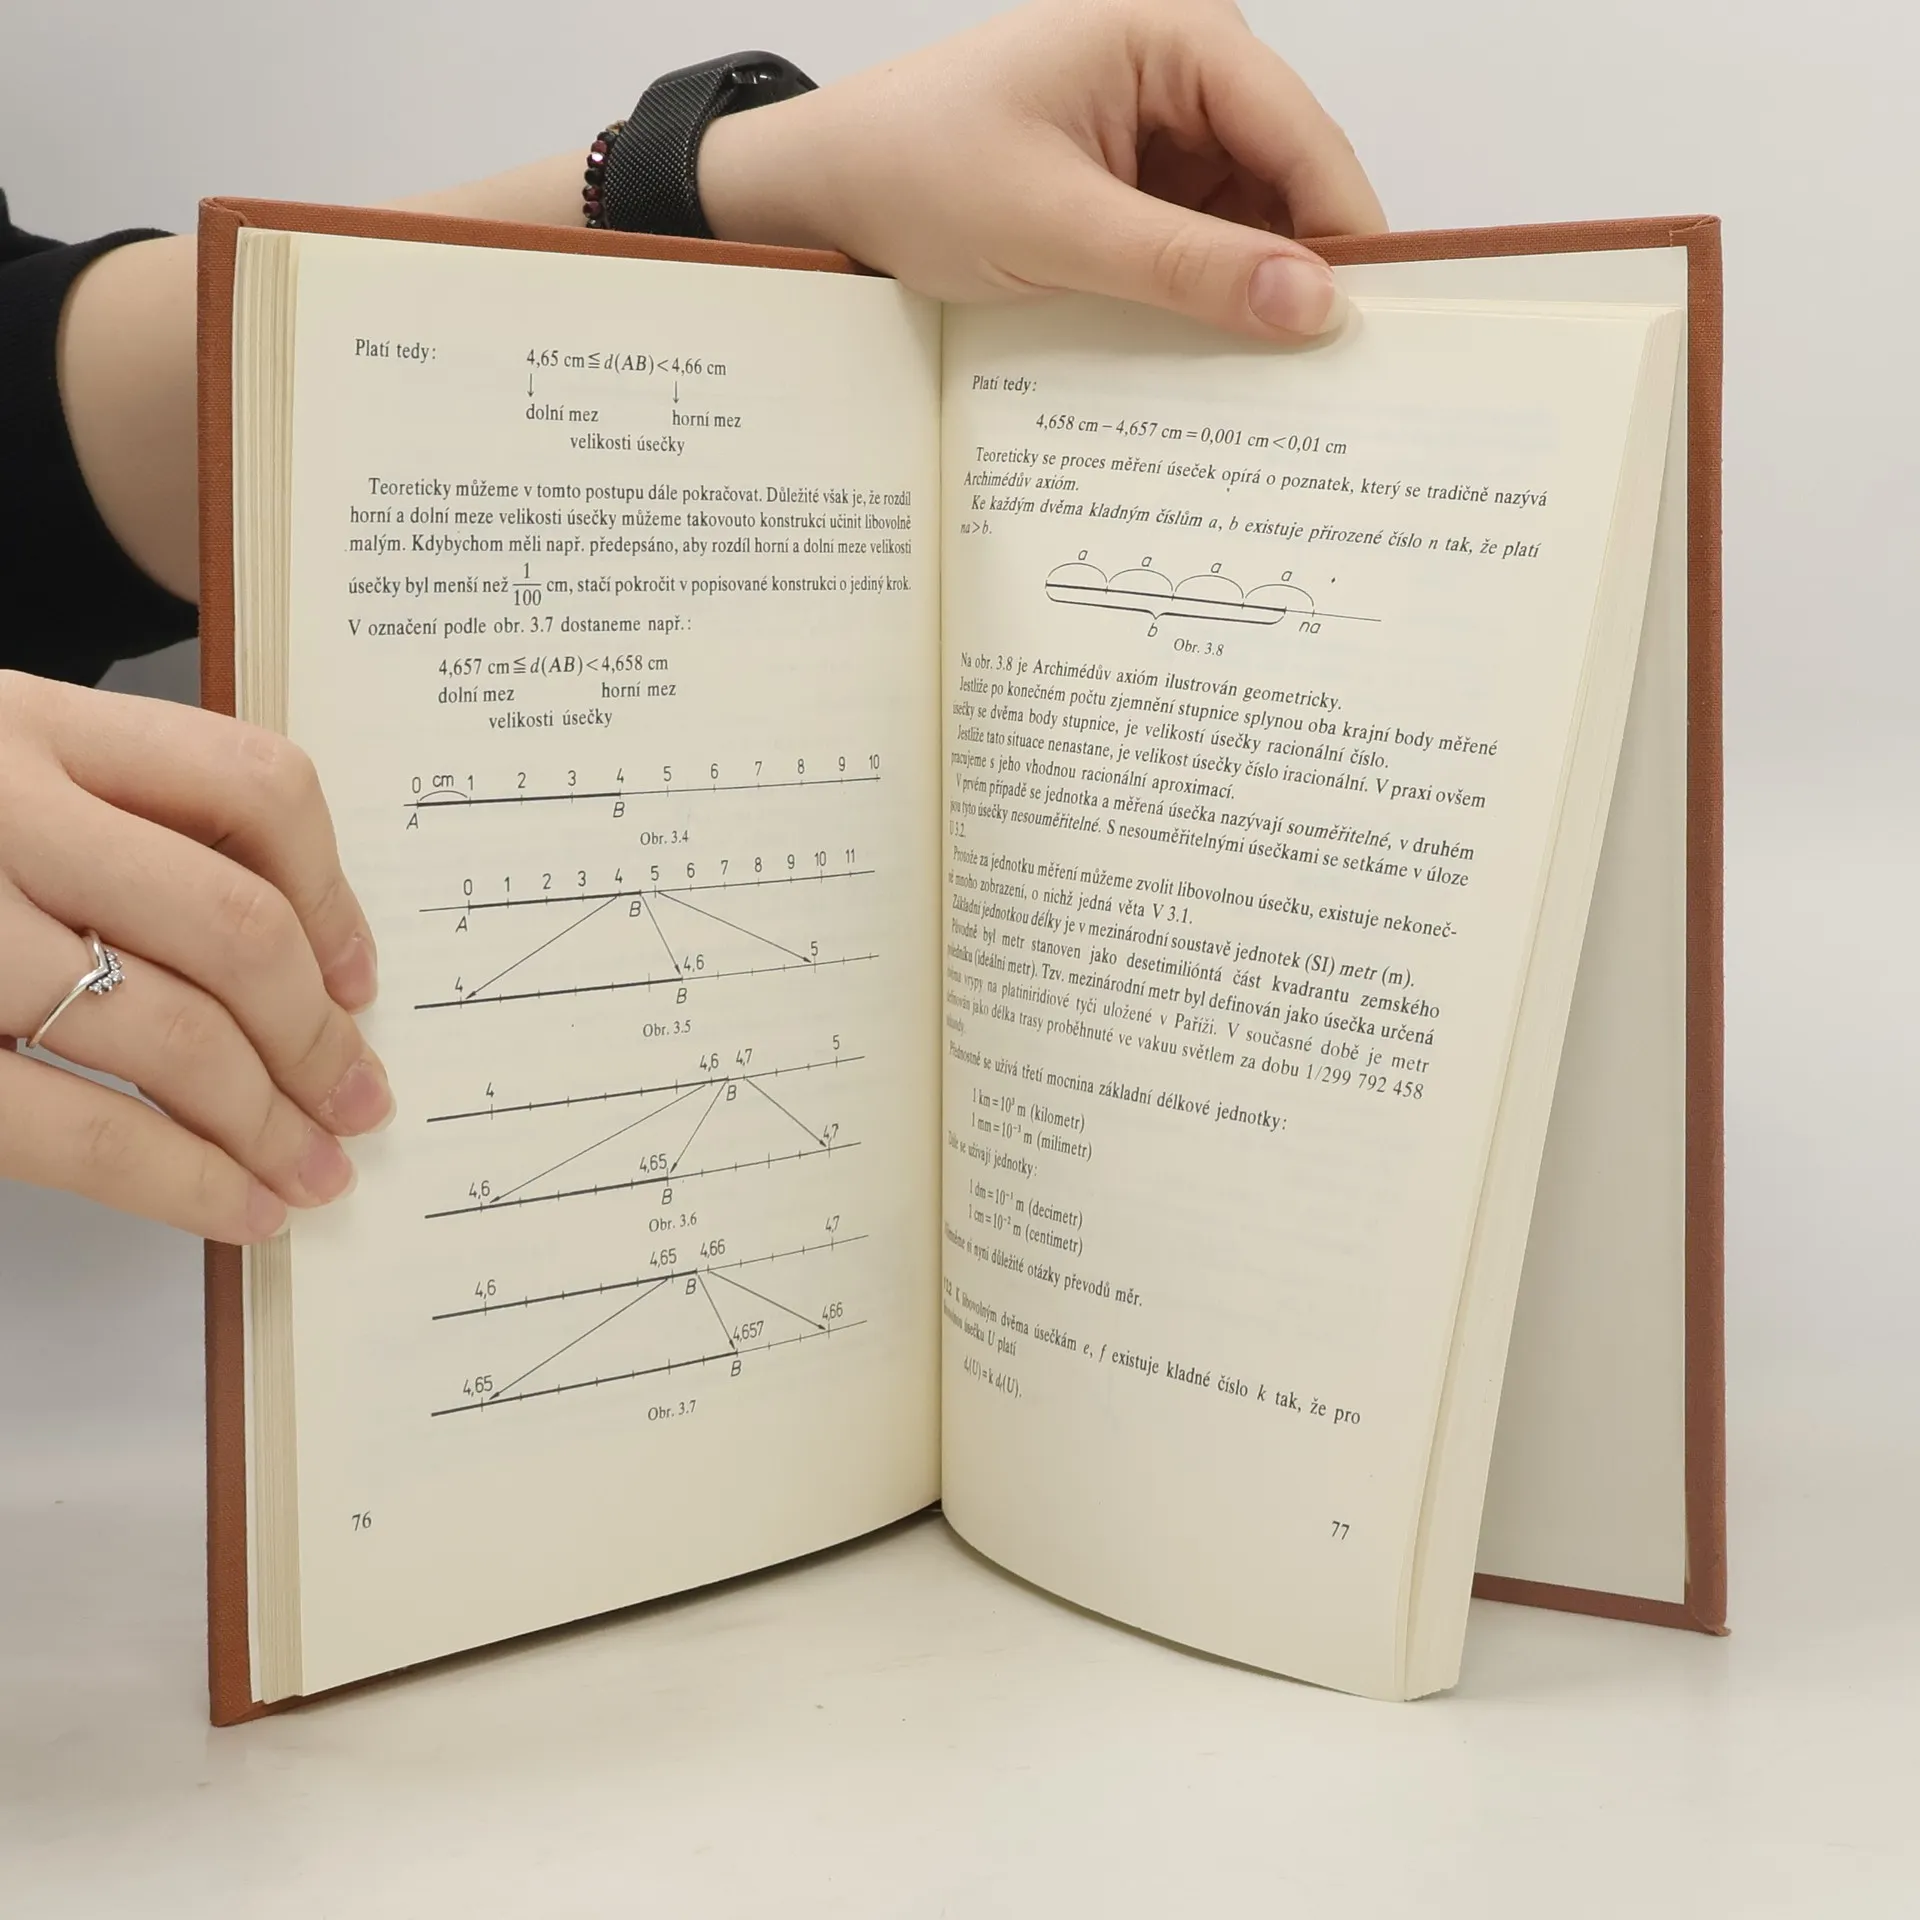 Platí tedy:
4,65 cm≦d(AB)<4,66 cm
↓ ↓
dolní mez horní mez
velikosti úsečky
Teoreticky můžeme v tomto postupu dále pokračovat. Důležité však je, že rozdíl
horní a dolní meze velikosti úsečky můžeme takovouto konstrukcí učinit libovolně
malým. Kdybychom měli např. předepsáno, aby rozdíl horní a dolní meze velikosti
úsečky byl menší než 1/100 cm, stačí pokročit v popisované konstrukci o jediný krok.
V označení podle obr. 3.7 dostaneme např.:
4,657 cm≦d(AB)<4,658 cm
dolní mez horní mez
velikosti úsečky
0 cm 1 2 3 4 5 6 7 8 9 10
A B
Obr. 3.4
0 1 2 3 4 5 6 7 8 9 10 11
A B
4 4,6 5
B
Obr. 3.5
4 4,6 4,7 5
B
4,6 4,65 4,7
B
Obr. 3.6
4,6 4,65 4,66 4,7
B
4,65 4,657 4,66
B
Obr. 3.7
76
Platí tedy:
4,658 cm−4,657 cm=0,001 cm<0,01 cm
Teoreticky se proces měření úseček opírá o poznatek, který se tradičně nazývá
Archimédův axióm.
Ke každým dvěma kladným číslům a, b existuje přirozené číslo n tak, že platí
na>b.
a a a a
b na
Obr. 3.8
Na obr. 3.8 je Archimédův axióm ilustrován geometricky.
Jestliže po konečném počtu zjemnění stupnice splynou oba krajní body měřené
úsečky se dvěma body stupnice, je velikostí úsečky racionální číslo.
Jestliže tato situace nenastane, je velikost úsečky číslo iracionální. V praxi ovšem
pracujeme s jeho vhodnou racionální aproximací.
V prvém případě se jednotka a měřená úsečka nazývají souměřitelné, v druhém
jsou tyto úsečky nesouměřitelné. S nesouměřitelnými úsečkami se setkáme v úloze
U 3.2.
Protože za jednotku měření můžeme zvolit libovolnou úsečku, existuje nekoneč-
ně mnoho zobrazení, o nichž jedná věta V 3.1.
Základní jednotkou délky je v mezinárodní soustavě jednotek (SI) metr (m).
Původně byl metr stanoven jako desetimilióntá část kvadrantu zemského
poledníku (ideální metr). Tzv. mezinárodní metr byl definován jako úsečka určená
vrypy na platiniridiové tyči uložené v Paříži. V současné době je metr
definován jako délka trasy proběhnuté ve vakuu světlem za dobu 1/299 792 458
sekundy.
Přednostně se užívá třetí mocnina základní délkové jednotky:
1 km=10³ m (kilometr)
1 mm=10⁻³ m (milimetr)
Dále se užívají jednotky:
1 dm=10⁻¹ m (decimetr)
1 cm=10⁻² m (centimetr)
si nyní důležité otázky převodů měr.
K libovolným dvěma úsečkám e, f existuje kladné číslo k tak, že pro
úsečku U platí
77